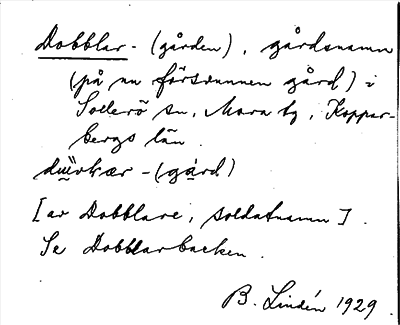 Dobblar- (gården), gårdsnamn
(på nu försvunnen gård) i
Sollerö sn, Mora tg, Koppar-
bergs län.
-(gård)
[av Dobblare, soldatnamn].
Se Dobblarbacken.
B. Lindén 1929.